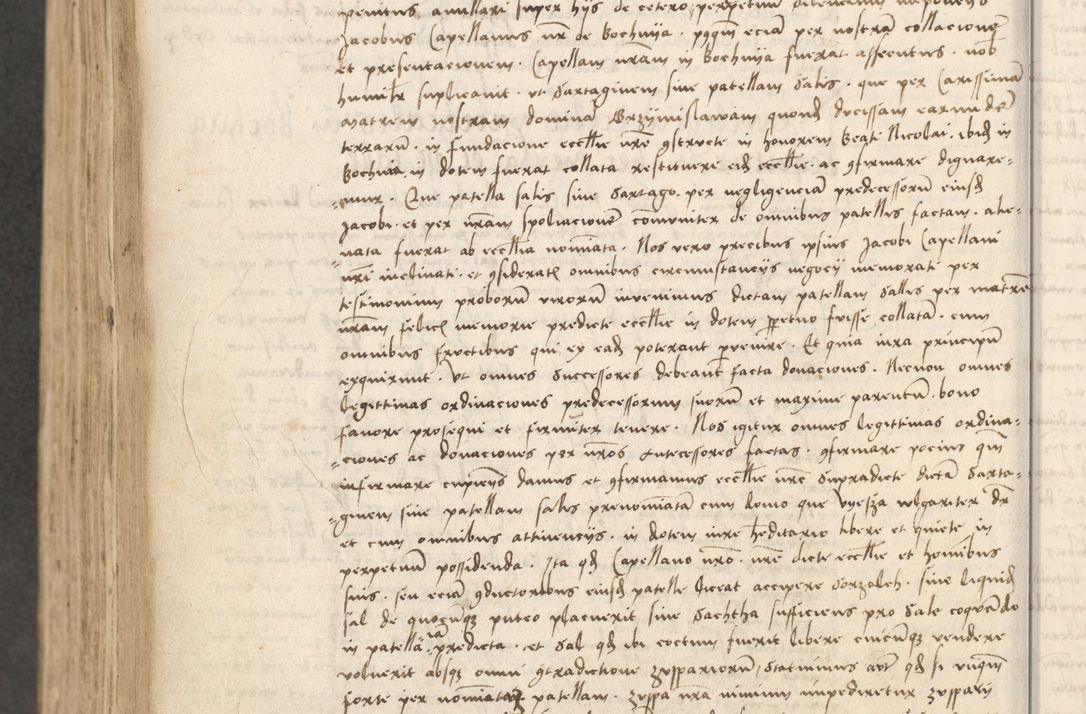 penitus annullari super hijs de cetero perpetuum
Jacobus Capellanus nr̄ de Bochnija · postq̄m eciā per nostrā collacionē
et presentacionem · Capellam nr̄am in Bochnija fuerat assecutus · nob
humilr̄ suplicauit · ut Sartaginem siue patellam Salis · que per Carissimā
Matrem nostram dominā Grzymislawam quond ducissam earundē
terrarū · in fundacione eccl̄ie nr̄e 9structe in honorem Beate Nicolai · ibid in
Bochnia in dotem fuerat collata restituere eid eccl̄ie · ac 9firmare dignare=
=mur · Que patella salis siue Sartago · per negligenciā predecessorū eiusd
Jacobi · et per nr̄am spoliacionē com̄uniter de omnibus patellis factam · alie=
nata fuerat ab eccl̄ia nomi̅ata · Nos vero precibus ipsius Jacobi Capellani
nr̄i inclinati · et 9siderat omnibus circumstancijs negocij memorati per
testimonium proborū virorū invenimus dictam patellam Salis per matrē
nr̄am felic memorie predicte eccl̄ie in dotem ppetuo fuisse collatā · cum
omnibus fructibus qui ex ead poterant pvenire · Et quia iura principū
exquirunt · ut omnes Successores debeant facta donaciones · Necnon omnes
legittimas ordinaciones predecessorum suorū et maxime parentū · bono
fauore prosequi et firmiter tenere · Nos igitur omnes legittimas ordina=
=ciones ac donaciones per nr̄os Antecessores factas · 9firmare pocius qm̄
infirmare cupientes damus et 9firmamus eccl̄ie nr̄e Supradicte dictā Sarta=
=ginem siue patellam salis prenomi̅atā cum domo que vulgariter dr̄
et cum omnibus attinencijs · in dotem iure hereditario libere et quiete in
perpetuum possidenda · Ita qd Capellano nr̄o · nr̄e dicte eccl̄ie et hominibus
suis · seu eciā 9ductoribus eiusd patelle liceat accipere Sorzaleh · siue liquid
sal de quocūqz puteo placuerit siue Sachtha sufficiens pro Sale coquēdo
in patella nr̄a predicta · et Sal qd ibi coctum fuerit libere cuicūqz vendere
voluerit absqz omni 9tradictione zuppariorū, Statuimus aut qd si unqm̄
forte per nomi̅atam patellam · zuppa nr̄a nimium impediretur zupparij